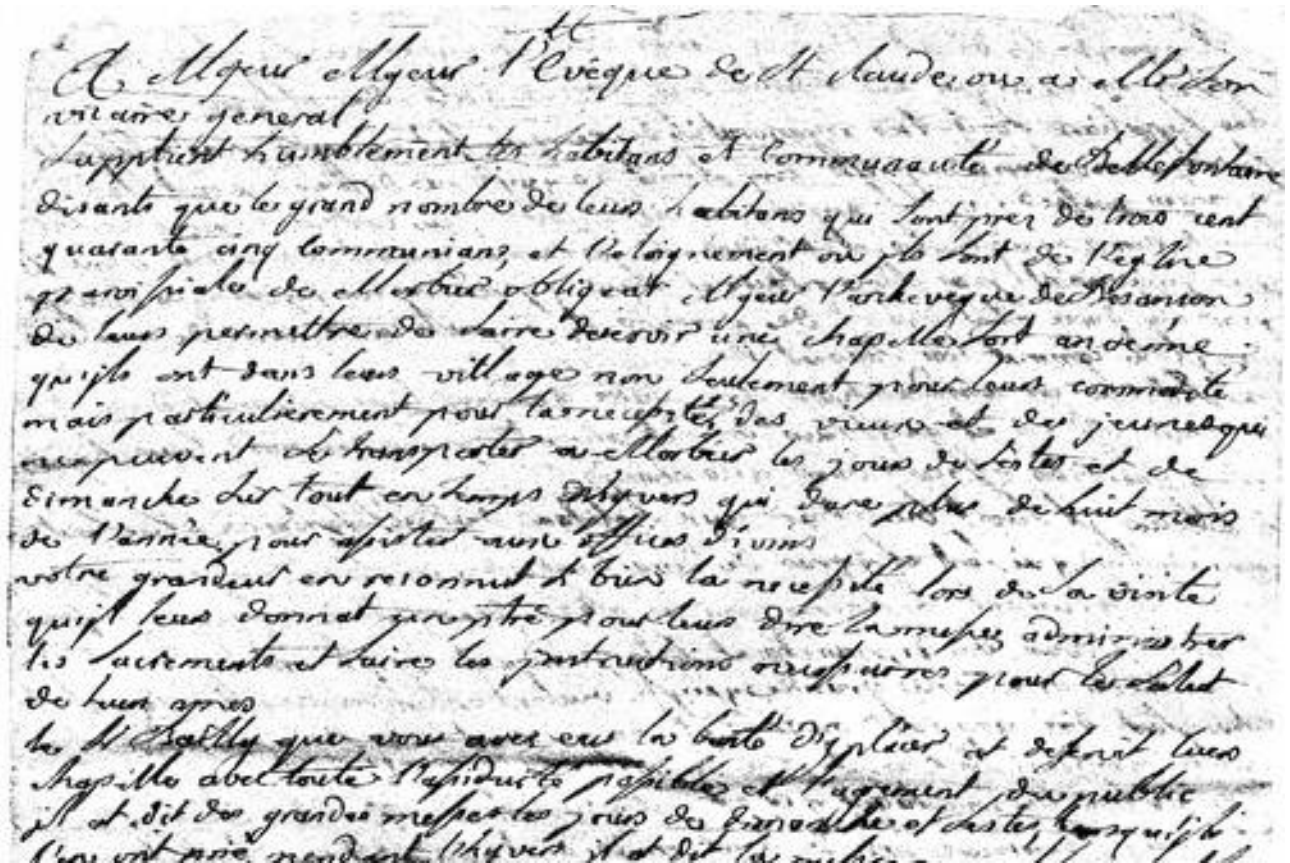 A Mgeur Mgeur l'Evéque de St claude ou a Mr son
vicaire general
Supplient humblement les habitans et Communauté de Bellefontaine
disants que le grand nombre de leurs habitans qui sont prez de trois cent
quarante cinq Communians, et l'eloignement ou jls sont de l'eglise
paroissiale de Morbier obligeat Mgeur l'archeveque de Besanson
de leurs permettre de faire deservir une chapelle fort ancienne
qu'jls ont dans leurs village non seulement pour leurs commodité
mais particulierement pour la necessité des vieux et des jeunes qui
ne peuvent se transporter a Morbier les jours de festes et de
dimanche sur tout en temps d'hyvers qui dure plus de huit mois
de l'année pour assister aux offices divins
votre grandeur en reconnut bien la necessité lors de sa visite
qu'jl leurs donnat un ptre pour leurs dire la messe administrer
les sacrements et faire les jnstructions necessaires pour le salut
de leurs ames
le Sr Bailly que vous avez eu la bonté d'y placer at deservit leurs
chapelle avec toute l'assiduité possible et l'agrement du public
jl at dit des grandes messes les jours de dimanche et festes lorsqu'jls
l'en ont prié pendant l'hyvers jl at dit la